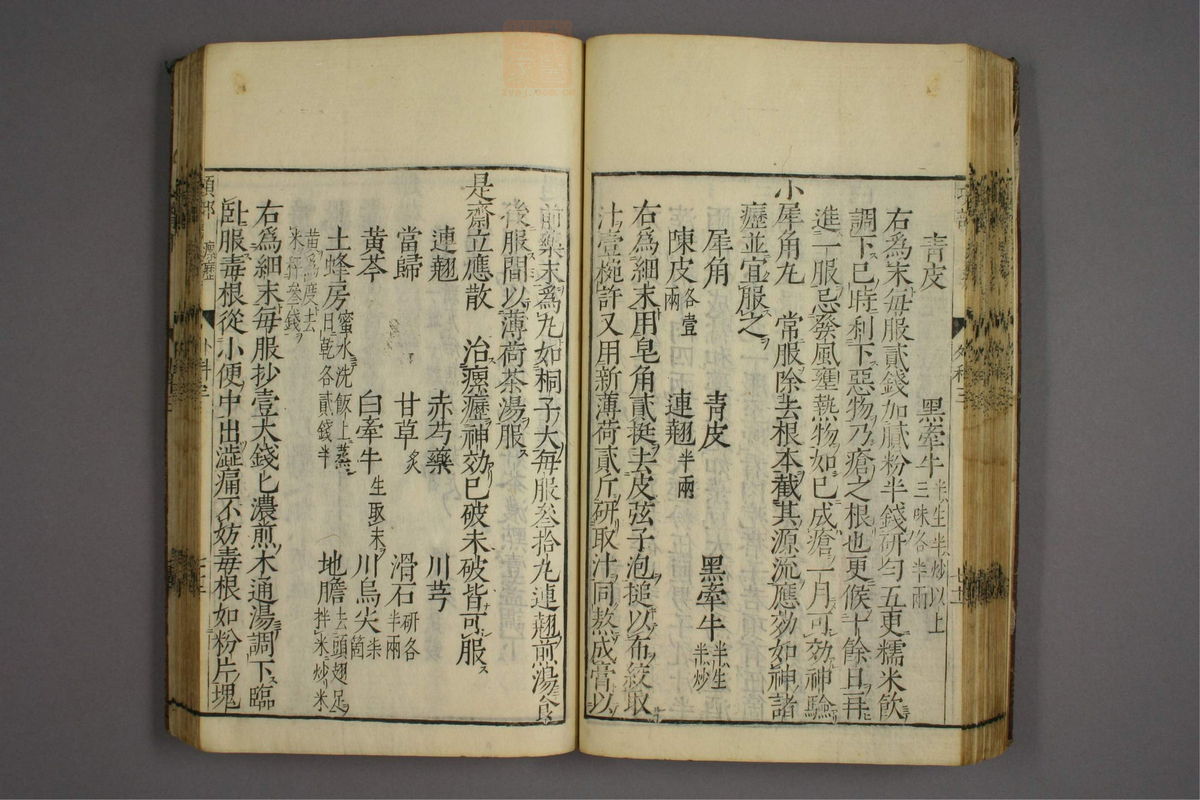 青皮 黑牽牛半生半炒以上三味各半兩
右爲末每服貳錢加膩粉半錢研勻五更糯米飲
調下巳時利下惡物乃瘡之根也更候十餘日再
進一服忌發風壅熱物如已成瘡一月可効神驗
小犀角丸 常服除去根本截其源流應効如神諸
癧並宜服之
犀角 青皮 黑牽牛半生半炒
陳皮各壹兩 連翹半兩
右爲細末用皂角貳挺去皮弦子泡搥以布絞取
汁壹椀許又用新薄荷貳斤研取汁同熬成膏以
前藥末爲丸如桐子大每服叁拾丸連翹煎湯食
後服間以薄荷茶湯服
是齋立應散 治瘰癧神効已破未破皆可服
連翹 赤芍藥 川芎
當歸 甘草炙 滑石研各半兩
黃芩 白牽牛生取末 川烏尖柒箇
土蜂房蜜水洗飯上蒸日乾各貳錢半 地膽去頭翅足拌米炒米
黃爲度去米秤叁錢
右爲細末每服抄壹大錢匕濃煎木通湯調下臨
臥服毒根從小便中出澁痛不妨毒根如粉片塊
項部 瘰癧
外科三